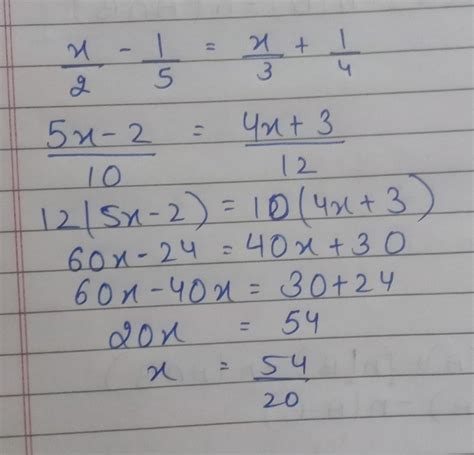 x/2 - 1/5 = x/3 + 1/4
5x-2/10 = 4x+3/12
12(5x-2) = 10(4x+3)
60x-24 = 40x+30
60x-40x = 30+24
20x = 54
x = 54/20